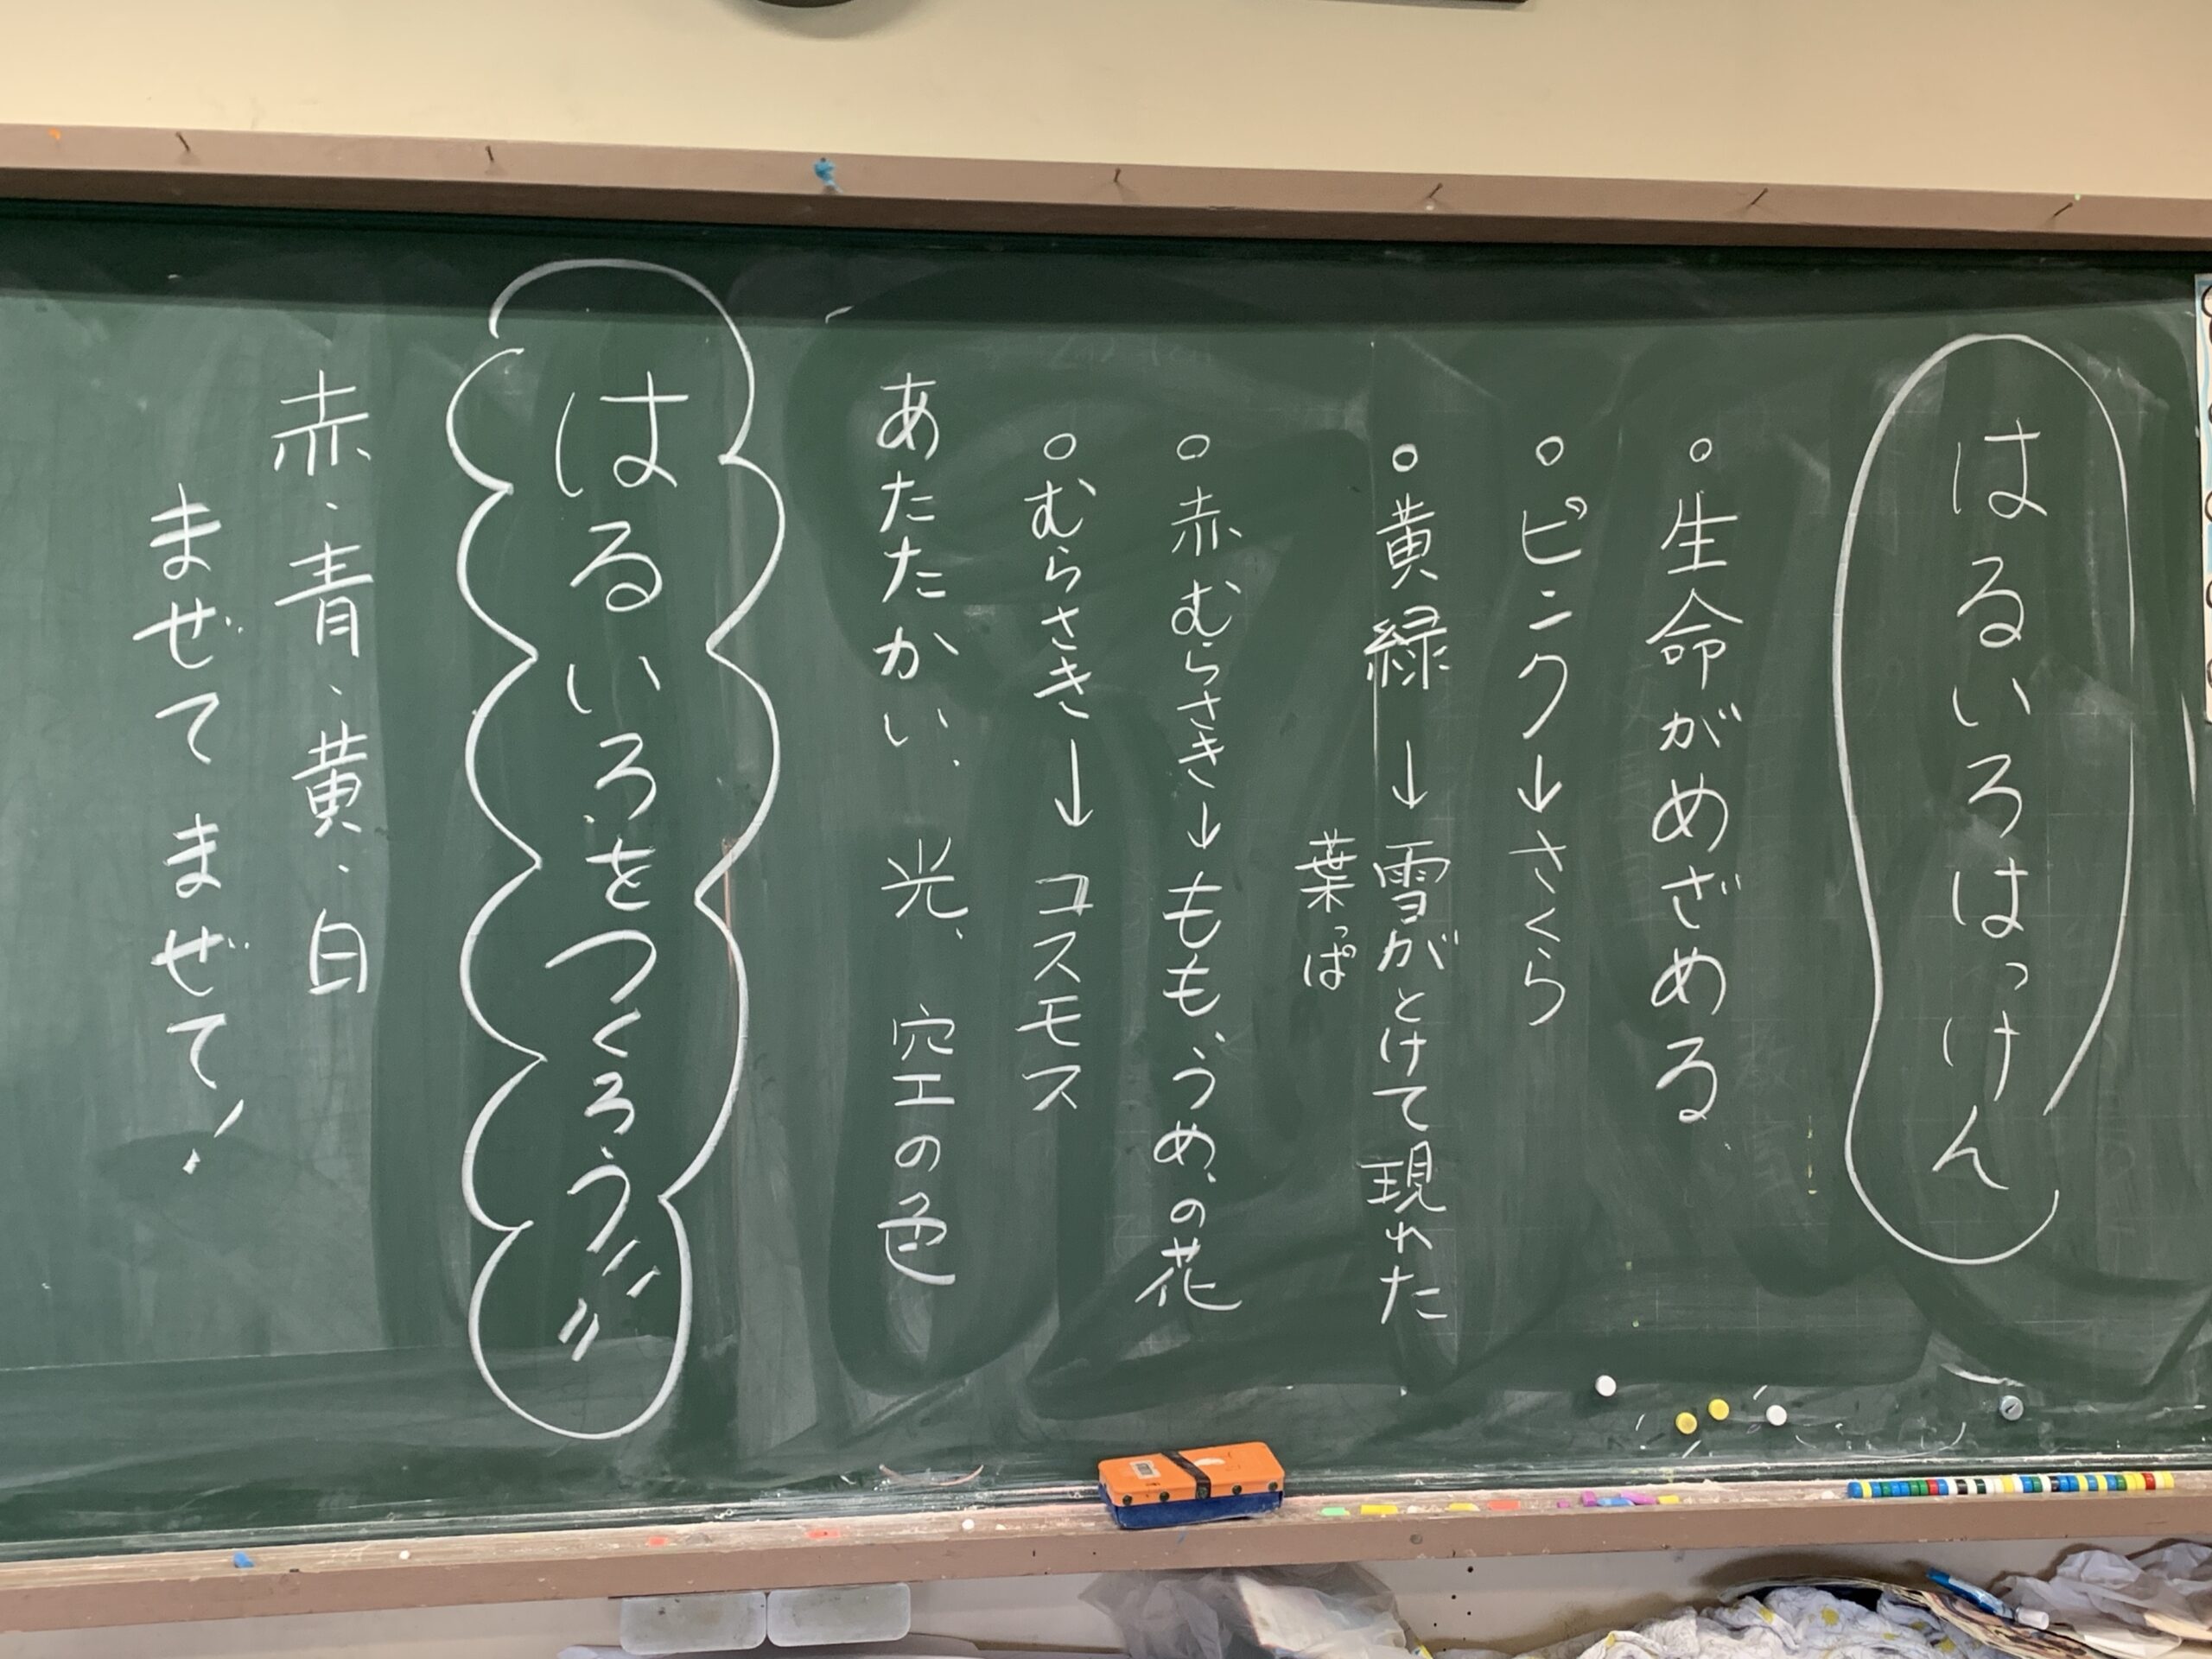 はるいろはっけん
○生命がめざめる
○ピンク→さくら
○黄緑→雪がとけて現れた
葉っぱ
○赤むらさき→もも、うめ、の花
○むらさき→コスモス
あたたかい、光、空の色
はるいろをつくろう!!
赤、青、黄、白
まぜてまぜて!